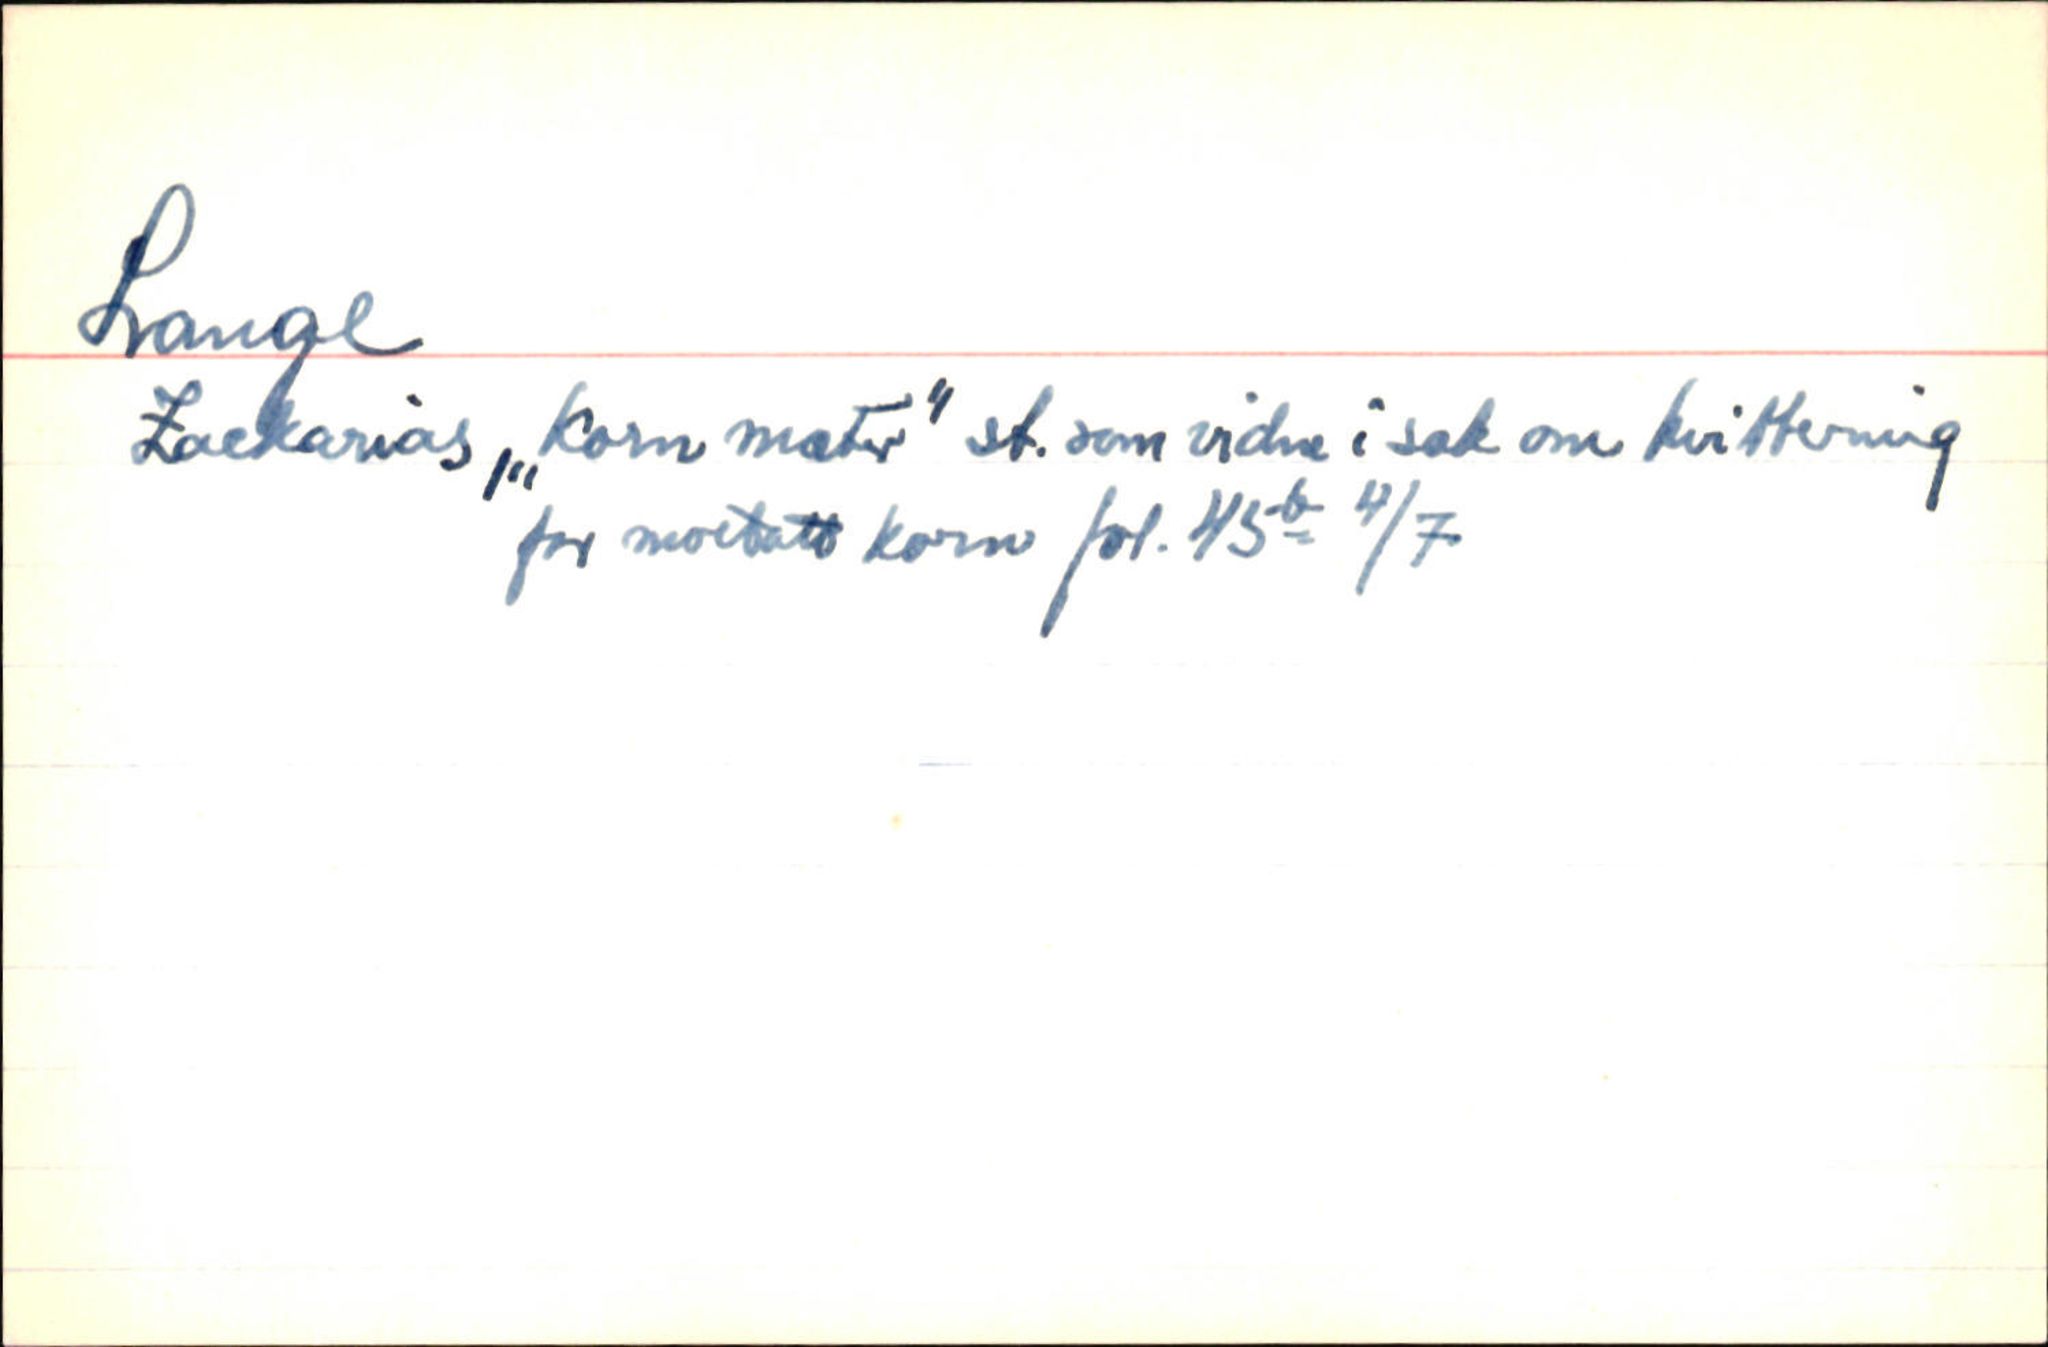 Lange
Zackarias, „Korn mæter" st. som vidne i sak om kvittering
for mottatt korn fol. 45b 4/7